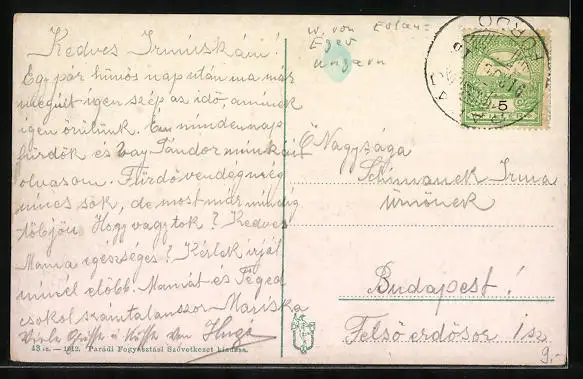 Kedves Irmuskám!
Egy pár hűvös nap után ma már
megint igen szép az idő, aminek
igen örülünk. Én mindennap
fürdök és Vay Sándor munkáit
olvasom. Fürdővendégség
nincs sok, de most már mindig
több jön. Hogy vagytok? Kedves
Mama egészséges? Kérlek írjál
minél előbb. Mamát és Téged
csókol számtalanszor Mariska
Viele Grüsse u Küsse von Hugo
43 sz. — 1912. Parádi Fogyasztási Szövetkezet kiadása.
w. von
Eger
ungarn
5
Ő Nagysága
Schimanek Irma
úrnőnek
Budapest!
Felső erdősor 1 sz
9.-